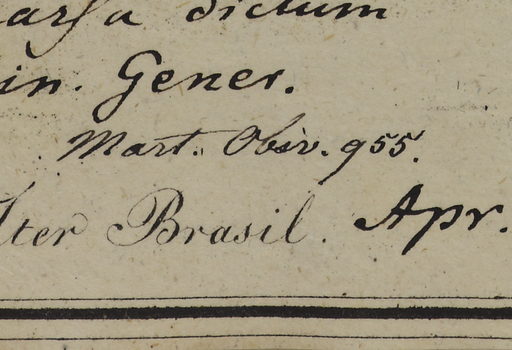 dictum
in. Gener.
Mart. Obsv. 955.
Iter Brasil. Apr.